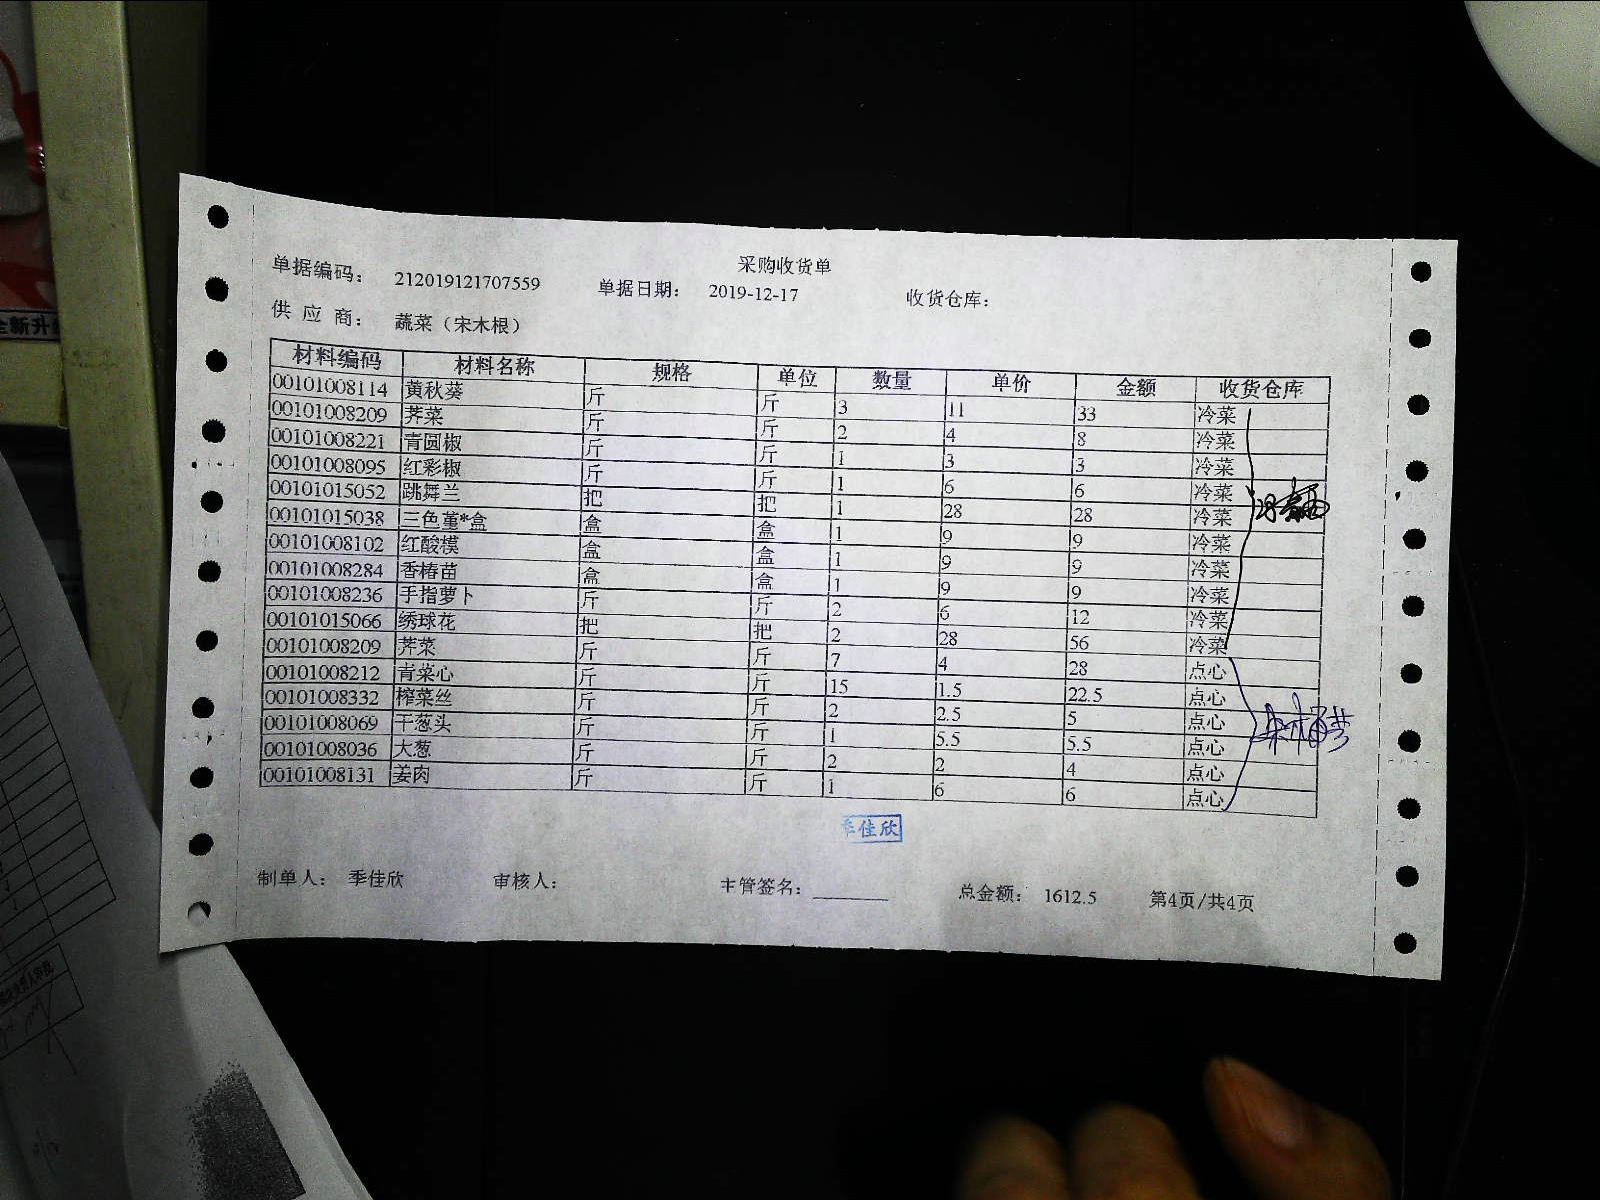 采购收货单
单据编码： 212019121707559 单据日期： 2019-12-17 收货仓库：
供 应 商： 蔬菜（宋木根）
材料编码 材料名称 规格 单位 数量 单价 金额 收货仓库
00101008114 黄秋葵 斤 斤 3 11 33 冷菜
00101008209 荠菜 斤 斤 2 4 8 冷菜
00101008221 青圆椒 斤 斤 1 3 3 冷菜
00101008095 红彩椒 斤 斤 1 6 6 冷菜
00101015052 跳舞兰 把 把 1 28 28 冷菜
00101015038 三色堇*盒 盒 盒 1 9 9 冷菜
00101008102 红酸模 盒 盒 1 9 9 冷菜
00101008284 香椿苗 盒 盒 1 9 9 冷菜
00101008236 手指萝卜 斤 斤 2 6 12 冷菜
00101015066 绣球花 把 把 2 28 56 冷菜
00101008209 荠菜 斤 斤 7 4 28 点心
00101008212 青菜心 斤 斤 15 1.5 22.5 点心
00101008332 榨菜丝 斤 斤 2 2.5 5 点心
00101008069 干葱头 斤 斤 1 5.5 5.5 点心
00101008036 大葱 斤 斤 2 2 4 点心
00101008131 姜肉 斤 斤 1 6 6 点心
季佳欣
制单人： 季佳欣 审核人： 主管签名： 总金额： 1612.5 第4页/共4页
全新升